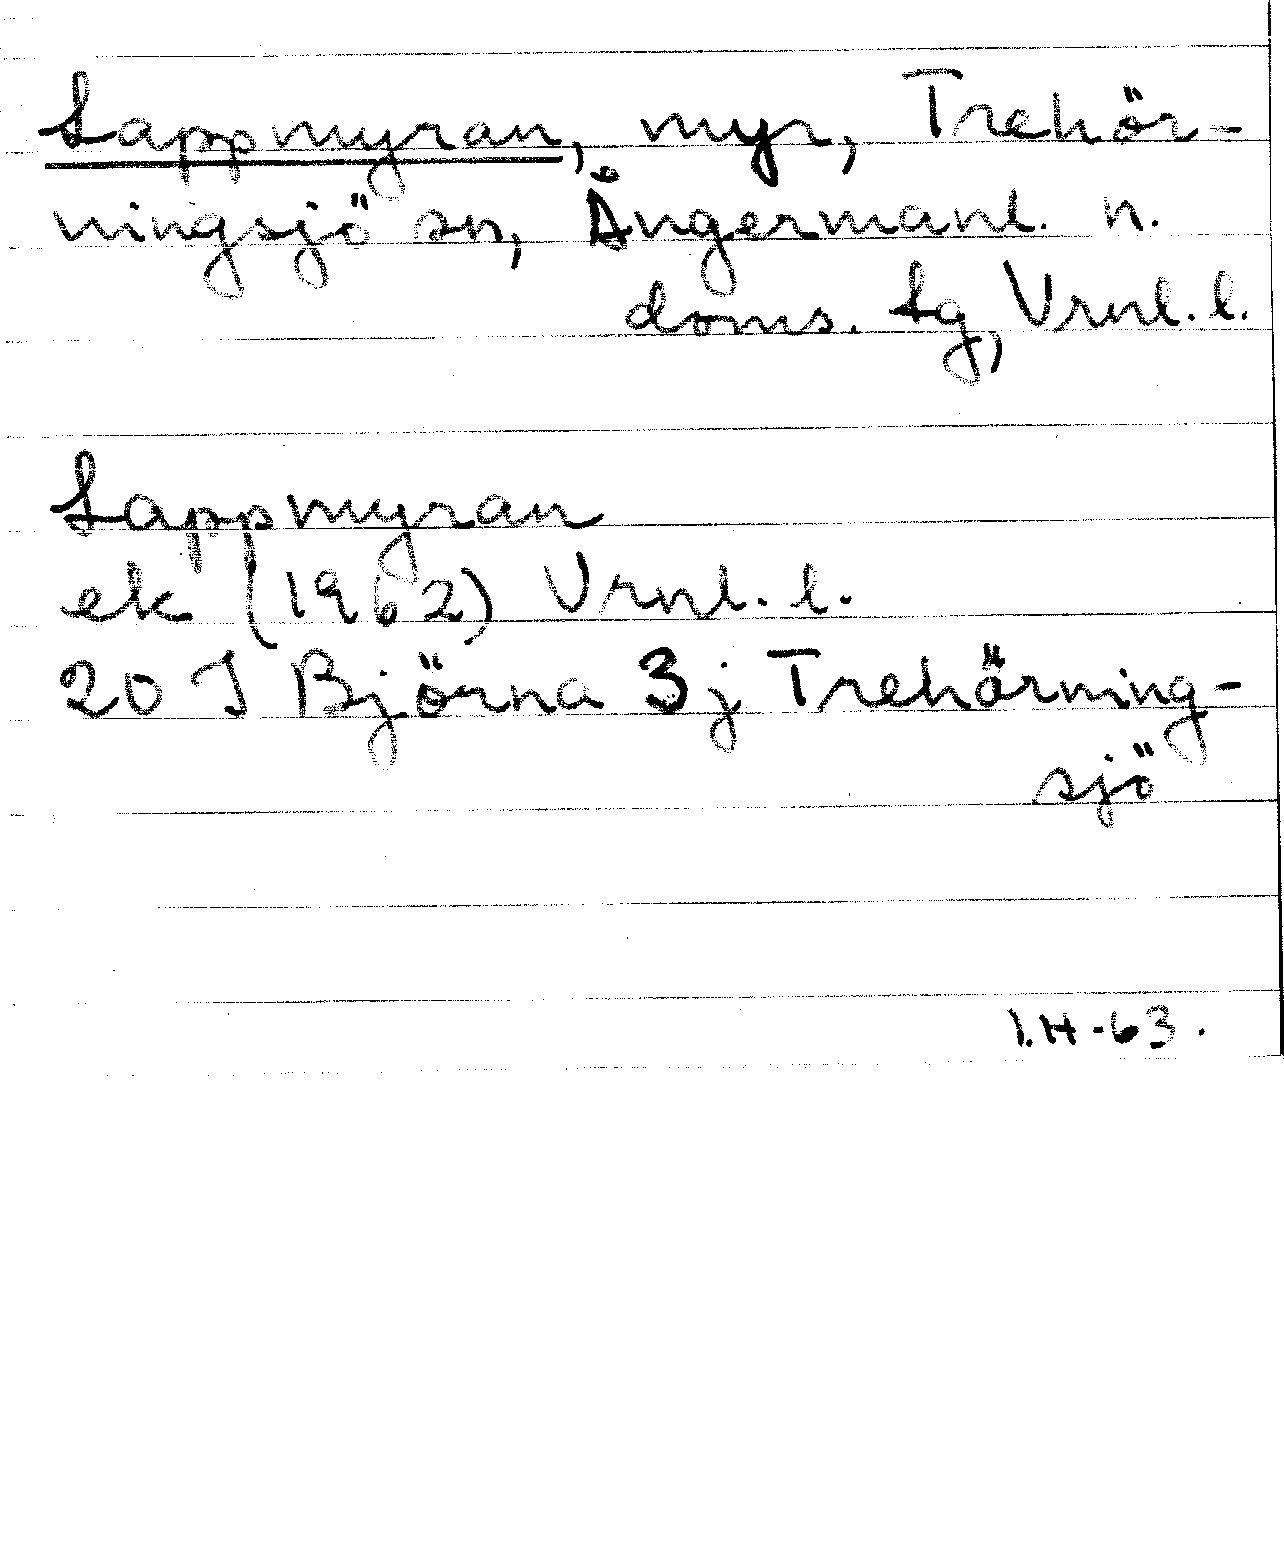 Lappmyran, myr, Trehör-
ningsjö sn, Ångermanl. n.
doms. Lg, Vrnl. l.
Lappmyran
ek (1962) Vrnl. l.
20 I Björna 3j Trehörning-
sjö
I.H-63.